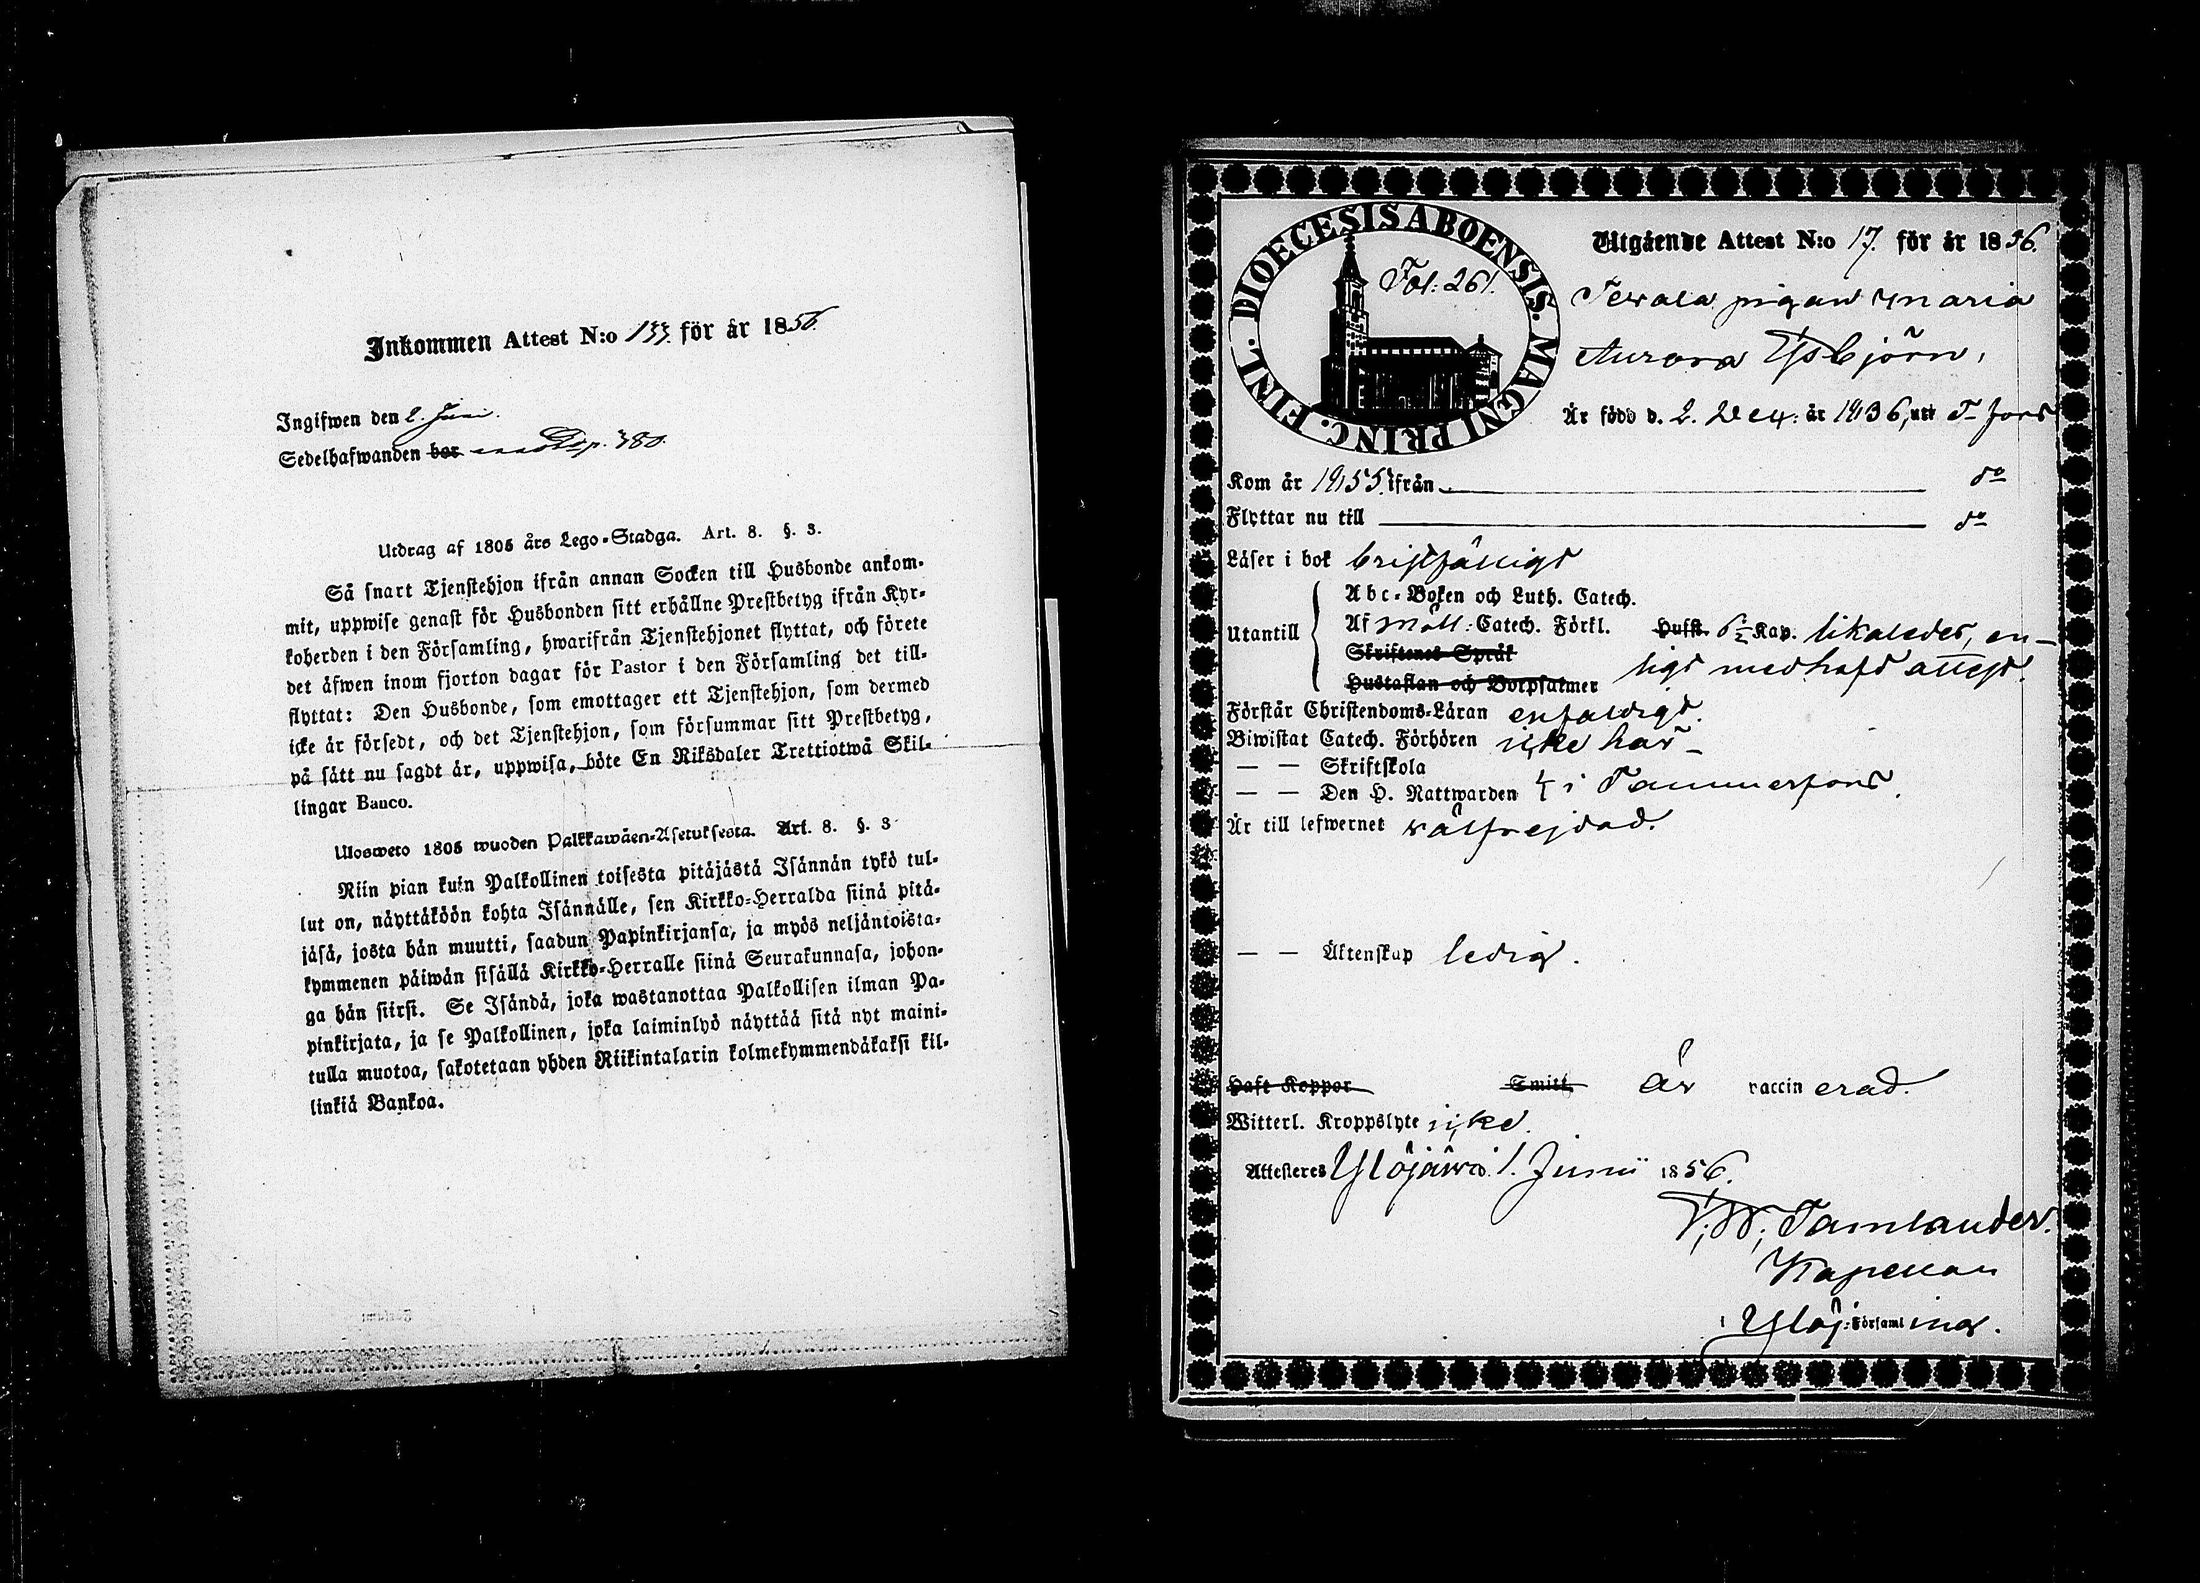 Inkommen Attest N:o 133. för år 1856.
Ingifwen den 2. Juni.
Sedelhafwanden bor p. 380.
Utdrag af 1805 års Lego-Stadga. Art. 8. §. 3.
Så snart Tjenstehjon ifrån annan Socken till Husbonde ankom-
mit, uppwise genast för Husbonden sitt erhållne Prestbetyg ifrån Kyr-
koherden i den Församling, hwarifrån Tjenstehjonet flyttat, och förete
det äfwen inom fjorton dagar för Pastor i den Församling det till-
flyttat: Den Husbonde, som emottager ett Tjenstehjon, som dermed
icke är försedt, och det Tjenstehjon, som försummar sitt Prestbetyg,
på sätt nu sagdt är, uppwisa, böte En Riksdaler Trettiotwå Skil-
lingar Banco.
Ulosweto 1805 wuoden Palkkawäen-Asetuksesta. Art. 8. §. 3
Niin pian kuin Palkollinen toisesta pitäjästä Isännän tykö tul-
lut on, näyttäköön kohta Isännälle, sen Kirkko-Herralda siinä pitä-
jäsä, josta hän muutti, saadun Papinkirjansa, ja myös neljäntoista-
kymmenen päiwän sisällä Kirkko-Herralle siinä Seurakunnasa, johon-
ga hän siirsi. Se Isändä, joka wastanottaa Palkollisen ilman Pa-
pinkirjata, ja se Palkollinen, joka laiminlyö näyttää sitä nyt maini-
tulla muotoa, sakotetaan yhden Riikintalarin kolmekymmendäkaksi kil-
linkiä Bankoa.
DIOECESIS ABOENSIS. MAGNI PRINC. FINL.
Fol: 261.
Utgående Attest N:o 17. för år 1856.
pigan Maria
Aurora Ysbjörn,
Är född d. 2. Dec: år 1836, uti T-fors
Kom år 1855. ifrån do
Flyttar nu till do
Läser i bok bristfälligt
Utantill
Abc-Boken och Luth. Catech.
Af Möll: Catech. Förkl. Husst. Kap. likaledes, en-
Skriftenes Språk
ligt medhafd attest.
Hustaflan och Botpsalmer
Förstår Christendoms-Läran enfaldigt.
Biwistat Catech. Förhören icke här
— — Skriftskola
— — Den H. Nattwarden i Tammerfors.
Är till lefwernet wälfrejdad.
— — Äktenskap ledig.
Haft Koppor Smitt Är vaccinerad.
Witterl. Kroppslyte icke.
Attesteres Ylöjärvi 1. Junii 1856.
Tamlander.
Kapellan
i Ylöj: Församling.